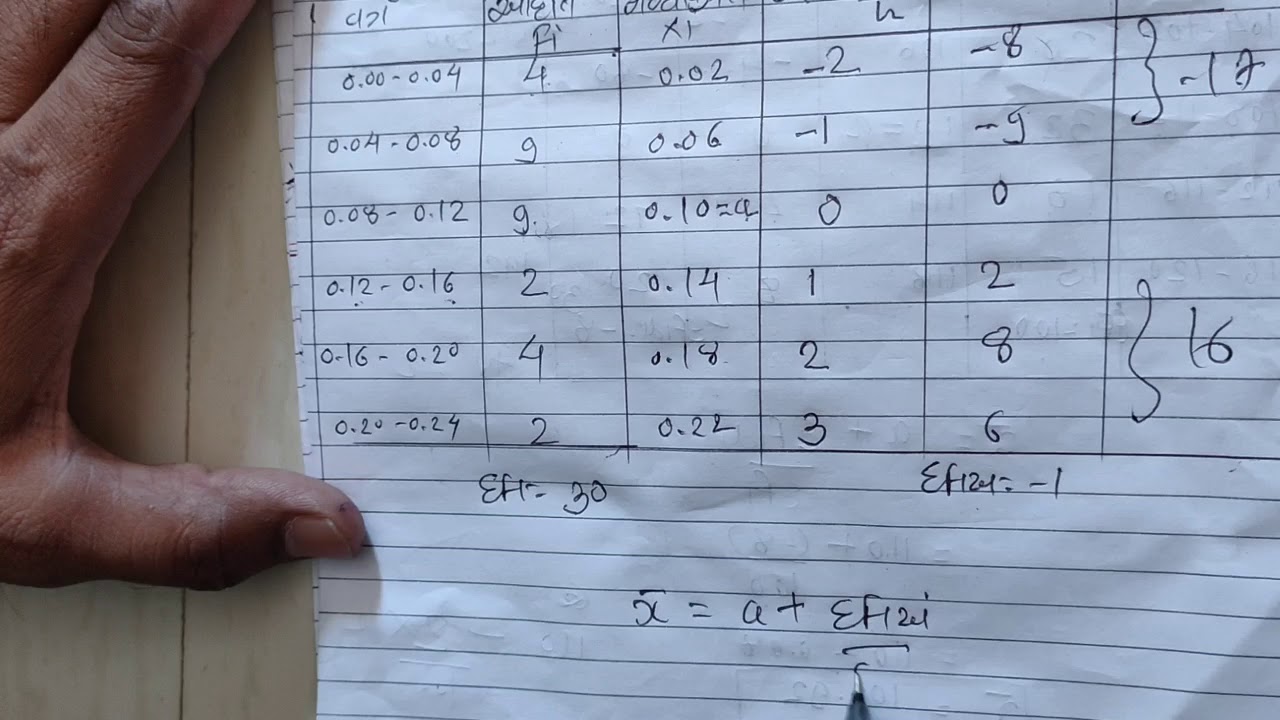 वर्ग h
fi xi
0.00 - 0.04 4 0.02 -2 -8
} -17
0.04 - 0.08 9 0.06 -1 -9
0.08 - 0.12 9. 0.10=a 0 0
0.12 - 0.16 2 0.14 1 2
0.16 - 0.20 4 0.18 2 8 } 16
0.20 - 0.24 2 0.22 3 6
Σfi = 30 Σfiui = -1
x̄ = a + Σfiui